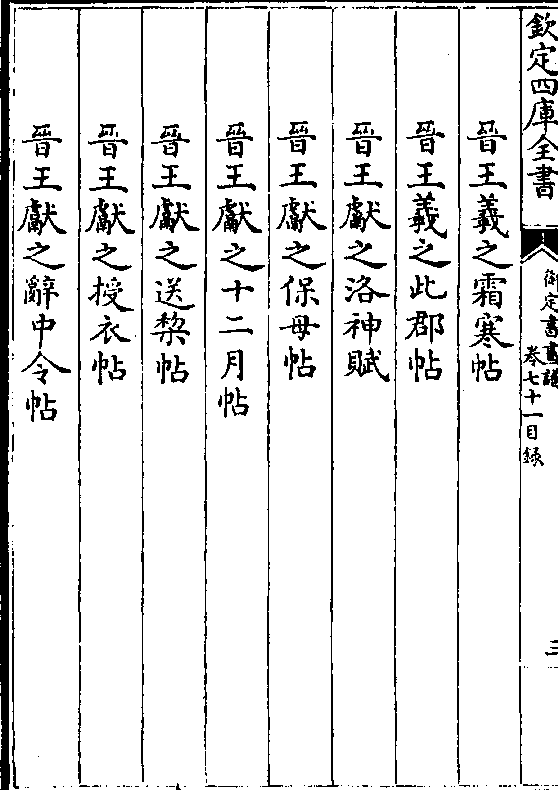 欽定四庫全書
御定書畫譜
卷七十一目錄
三
晉王羲之霜寒帖
晉王羲之此郡帖
晉王獻之洛神賦
晉王獻之保母帖
晉王獻之十二月帖
晉王獻之送棃帖
晉王獻之授衣帖
晉王獻之辭中令帖